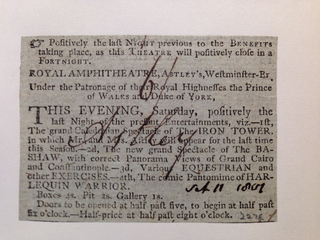 ☞ Positively the last NIGHT previous to the BENEFITS
taking place, as this THEATRE will positively close in a
FORTNIGHT.
ROYAL AMPHITHEATRE, ASTLEY's, Westminster-Br.
Under the Patronage of their Royal Highnesses the Prince
of WALES and Duke of YORK,
THIS EVENING, Saturday, positively the
last Night of the present Entertainments, viz.—1st,
The grand Caledonian Spectacle of The IRON TOWER,
in which Mr. and Mrs. Astley will appear for the last time
this Season.—2d, The new grand Spectacle of The BA-
SHAW, with correct Panorama Views of Grand Cairo
and Constantinople.—3d, Various EQUESTRIAN and
other EXERCISES.—4th, The comic Pantomime of HAR-
LEQUIN WARRIOR.
1801
Boxes 4s. Pit 2s. Gallery 1s.
Doors to be opened at half past five, to begin at half past
six o'clock.—Half-price at half past eight o'clock.